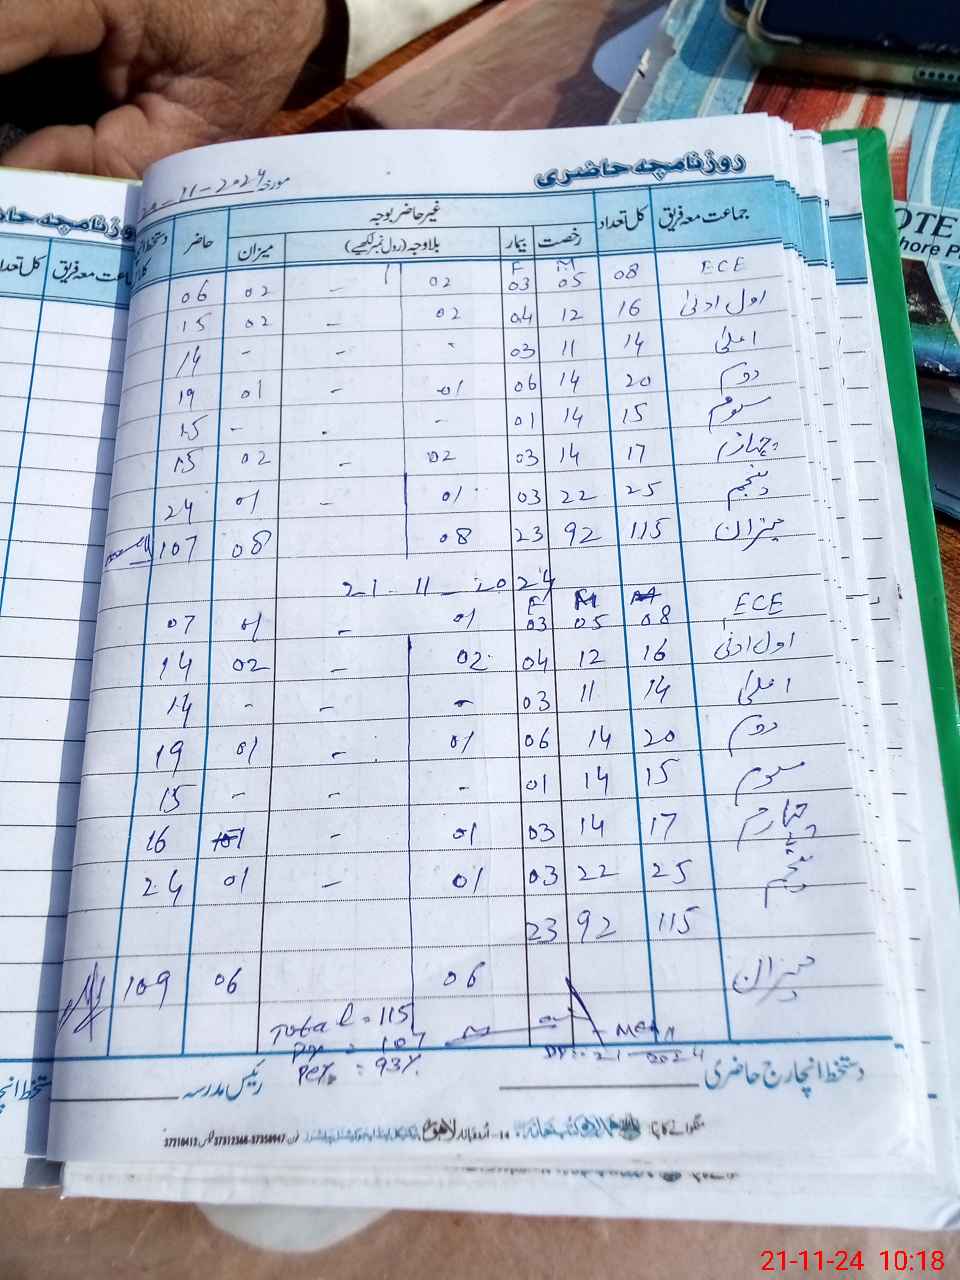 روزنامچہ حاضری
مورخہ 20-11-2024
جماعت معہ فریق کل تعداد غیر حاضر بوجہ حاضر
رخصت بیمار بلاوجہ (رول نمبر لکھیے) میزان
F M
ECE 08 05 03 02 - 02 06
اول ادنیٰ 16 12 04 02 - 02 15
اعلیٰ 14 11 03 - - - 14
دوم 20 14 06 01 - 01 19
سوم 15 14 01 - - - 15
چہارم 17 14 03 02 - 02 15
پنجم 25 22 03 01 - 01 24
میزان 115 92 23 08 08 107
21-11-2024
F M
ECE 08 05 03 01 - 01 07
اول ادنیٰ 16 12 04 02 - 02 14
اعلیٰ 14 11 03 - - - 14
دوم 20 14 06 01 - 01 19
سوم 15 14 01 - - - 15
چہارم 17 14 03 01 - 01 16
پنجم 25 22 03 01 - 01 24
115 92 23
میزان 06 06 109
Total = 115
107
Per. : 93%
دستخط انچارج حاضری رئیس مدرسہ
روزنامچہ حاضری
جماعت معہ فریق کل تعداد
OTE
hore P
21-11-24 10:18